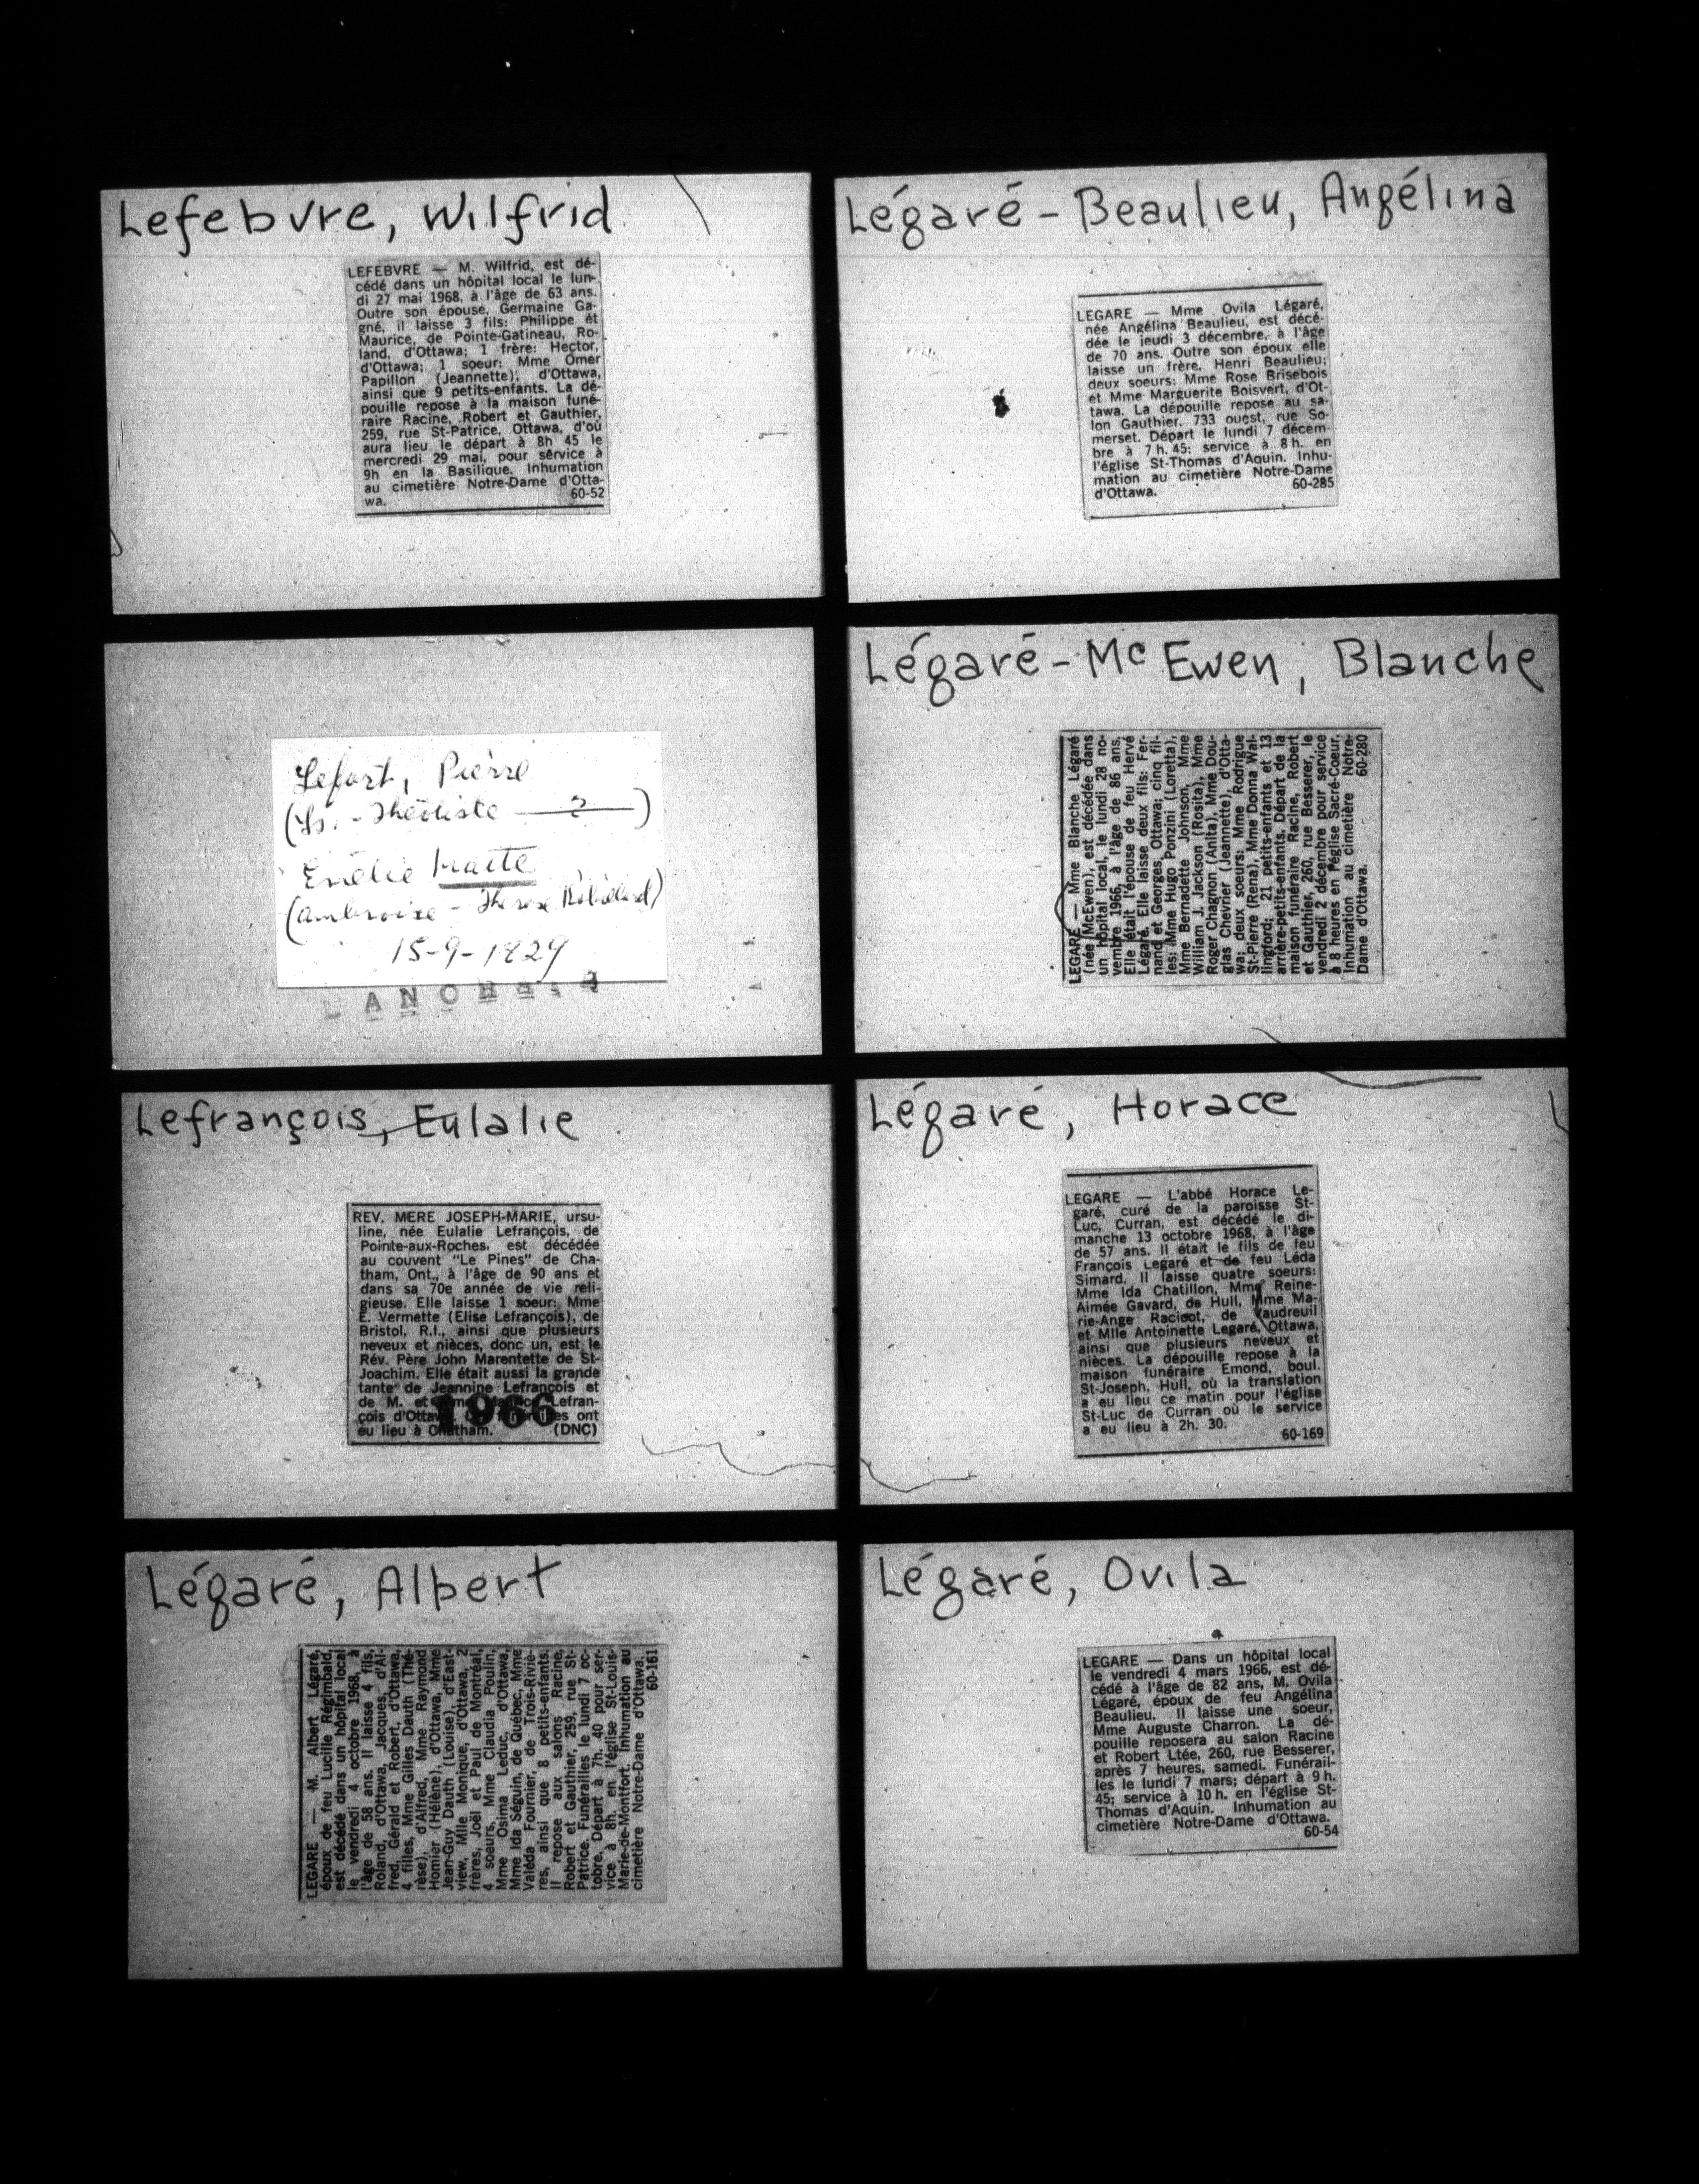 Lefebvre, Wilfrid
LEFEBVRE — M. Wilfrid, est dé-
cédé dans un hôpital local le lun-
di 27 mai 1968, à l'âge de 63 ans.
Outre son épouse, Germaine Ga-
gné, il laisse 3 fils: Philippe et
Maurice, de Pointe-Gatineau, Ro-
land, d'Ottawa; 1 frère: Hector,
d'Ottawa; 1 soeur: Mme Omer
Papillon (Jeannette), d'Ottawa,
ainsi que 9 petits-enfants. La dé-
pouille repose à la maison funé-
raire Racine, Robert et Gauthier,
259, rue St-Patrice, Ottawa, d'où
aura lieu le départ à 8h 45 le
mercredi 29 mai, pour service à
9h en la Basilique. Inhumation
au cimetière Notre-Dame d'Otta-
wa. 60-52
Lefort, Pierre
(Ls. - Théotiste —?—)
Emélie
(Ambroise - Therese Robillard)
15-9-1829
Lefrançois, Eulalie
REV. MERE JOSEPH-MARIE, ursu-
line, née Eulalie Lefrançois, de
Pointe-aux-Roches, est décédée
au couvent "Le Pines" de Cha-
tham, Ont., à l'âge de 90 ans et
dans sa 70e année de vie reli-
gieuse. Elle laisse 1 soeur: Mme
E. Vermette (Elise Lefrançois), de
Bristol, R.I., ainsi que plusieurs
neveux et nièces, donc un, est le
Rév. Père John Marentette de St-
Joachim. Elle était aussi la grande
tante de Jeannine Lefrançois et
de M. et Mme Lefran-
çois d'Ottawa. funérailles ont
eu lieu à Chatham. (DNC)
1966
Légaré, Albert
LEGARE — M. Albert Légaré,
époux de feu Lucille Régimbald,
est décédé dans un hôpital local
le vendredi 4 octobre 1968, à
l'âge de 58 ans. Il laisse 4 fils,
Roland, d'Ottawa, Jacques, d'Al-
fred, Gérald et Robert, d'Ottawa,
4 filles, Mme Gilles Dauth (Thé-
rèse), d'Alfred, Mme Raymond
Homier (Hélène), d'Ottawa, Mme
Jean-Guy Dauth (Louise), d'East-
view, Mlle Monique, d'Ottawa, 2
frères, Joël et Paul de Montréal,
4 soeurs, Mme Claudia Poulin,
Mme Osima Leduc, d'Ottawa,
Mme Ida Séguin, de Québec, Mme
Valéda Fournier, de Trois-Riviè-
res, ainsi que 8 petits-enfants.
Il repose aux salons Racine,
Robert et Gauthier, 259, rue St-
Patrice. Funérailles le lundi 7 oc-
tobre. Départ à 7h. 40 pour ser-
vice à 8h. en l'église St-Louis-
Marie-de-Montfort. Inhumation au
cimetière Notre-Dame d'Ottawa.
60-161
Légaré-Beaulieu, Angélina
LEGARE — Mme Ovila Légaré,
née Angélina Beaulieu, est décé-
dée le jeudi 3 décembre, à l'âge
de 70 ans. Outre son époux elle
laisse un frère, Henri Beaulieu;
deux soeurs: Mme Rose Brisebois
et Mme Marguerite Boisvert, d'Ot-
tawa. La dépouille repose au sa-
lon Gauthier, 733 ouest, rue So-
merset. Départ le lundi 7 décem-
bre à 7 h. 45; service à 8 h. en
l'église St-Thomas d'Aquin. Inhu-
mation au cimetière Notre-Dame
d'Ottawa. 60-285
Légaré-Mc Ewen, Blanche
LEGARE — Mme Blanche Légaré
(née McEwen), est décédée dans
un hôpital local, le lundi 28 no-
vembre 1966, à l'âge de 86 ans.
Elle était l'épouse de feu Hervé
Légaré. Elle laisse deux fils: Fer-
nand et Georges, Ottawa; cinq fil-
les: Mme Hugo Ponzini (Loretta),
Mme Bernadette Johnson, Mme
William J. Jackson (Rosita), Mme
Roger Chagnon (Anita), Mme Dou-
glas Chevrier (Jeannette), d'Otta-
wa; deux soeurs: Mme Rodrigue
St-Pierre (Rena), Mme Donna Wal-
lingford; 21 petits-enfants et 13
arrière-petits-enfants. Départ de la
maison funéraire Racine, Robert
et Gauthier, 260, rue Besserer, le
vendredi 2 décembre pour service
à 8 heures en l'église Sacré-Coeur.
Inhumation au cimetière Notre-
Dame d'Ottawa. 60-280
Légaré, Horace
LEGARE — L'abbé Horace Le-
garé, curé de la paroisse St-
Luc, Curran, est décédé le di-
manche 13 octobre 1968, à l'âge
de 57 ans. Il était le fils de feu
François Legaré et de feu Léda
Simard. Il laisse quatre soeurs:
Mme Ida Chatillon, Mme Reine-
Aimée Gavard, de Hull, Mme Ma-
rie-Ange Racicot, de Vaudreuil
et Mlle Antoinette Legaré, Ottawa,
ainsi que plusieurs neveux et
nièces. La dépouille repose à la
maison funéraire Emond, boul.
St-Joseph, Hull, où la translation
a eu lieu ce matin pour l'église
St-Luc de Curran où le service
a eu lieu à 2h. 30.
60-169
Légaré, Ovila
LEGARE — Dans un hôpital local
le vendredi 4 mars 1966, est dé-
cédé à l'âge de 82 ans, M. Ovila
Légaré, époux de feu Angélina
Beaulieu. Il laisse une soeur,
Mme Auguste Charron. La dé-
pouille reposera au salon Racine
et Robert Ltée, 260, rue Besserer,
après 7 heures, samedi. Funérail-
les le lundi 7 mars; départ à 9 h.
45; service à 10 h. en l'église St-
Thomas d'Aquin. Inhumation au
cimetière Notre-Dame d'Ottawa.
60-54